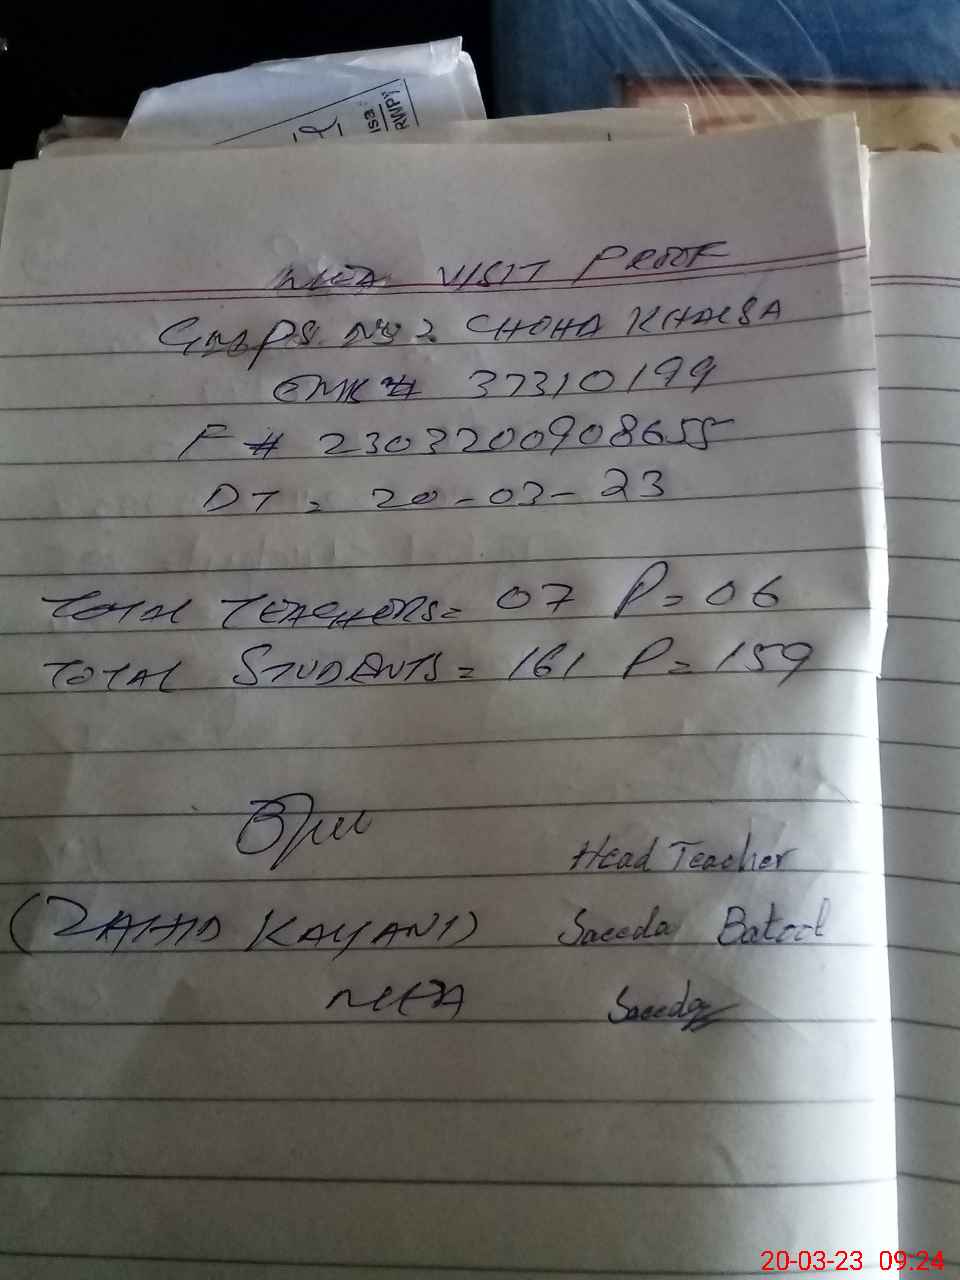 RWPy
isa
MEA VISIT PROOF
GMPS. No 2 CHOHA KHALSA
EMIS # 37310199
F # 2303200908655
DT = 20-03-23
TOTAL TEACHERS = 07 P = 06
TOTAL STUDENTS = 161 P = 159
Head Teacher
(ZAHID KAYANI) Saeeda Batool
MEA Saeeda
20-03-23 09:24